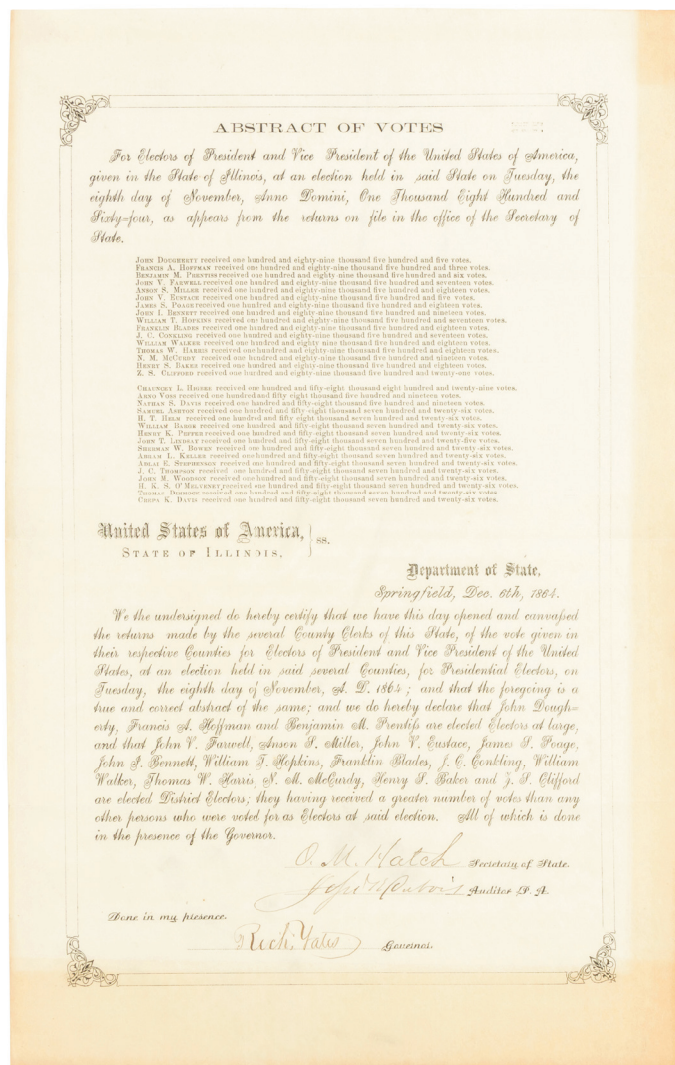 ABSTRACT OF VOTES
For Electors of President and Vice President of the United States of America,
given in the State of Illinois, at an election held in said State on Tuesday, the
eighth day of November, Anno Domini, One Thousand Eight Hundred and
Sixty=four, as appears from the returns on file in the office of the Secretary of
State.
JOHN DOUGHERTY received one hundred and eighty-nine thousand five hundred and five votes.
FRANCIS A. HOFFMAN received one hundred and eighty-nine thousand five hundred and three votes.
BENJAMIN M. PRENTISS received one hundred and eighty-nine thousand five hundred and six votes.
JOHN V. FARWELL received one hundred and eighty-nine thousand five hundred and seventeen votes.
ANSON S. MILLER received one hundred and eighty-nine thousand five hundred and eighteen votes.
JOHN V. EUSTACE received one hundred and eighty-nine thousand five hundred and five votes.
JAMES S. POAGE received one hundred and eighty-nine thousand five hundred and eighteen votes.
JOHN I. BENNETT received one hundred and eighty-nine thousand five hundred and nineteen votes.
WILLIAM T. HOPKINS received one hundred and eighty-nine thousand five hundred and seventeen votes.
FRANKLIN BLADES received one hundred and eighty-nine thousand five hundred and eighteen votes.
J. C. CONKLING received one hundred and eighty-nine thousand five hundred and seventeen votes.
WILLIAM WALKER received one hundred and eighty nine thousand five hundred and eighteen votes.
THOMAS W. HARRIS received one hundred and eighty-nine thousand five hundred and eighteen votes.
N. M. MCCURDY received one hundred and eighty-nine thousand five hundred and nineteen votes.
HENRY S. BAKER received one hundred and eighty-nine thousand five hundred and eighteen votes.
Z. S. CLIFFORD received one hundred and eighty-nine thousand five hundred and twenty-one votes.
CHAUNCEY L. HIGBEE received one hundred and fifty-eight thousand eight hundred and twenty-nine votes.
ARNO VOSS received one hundred and fifty-eight thousand five hundred and nineteen votes.
NATHAN S. DAVIS received one hundred and fifty-eight thousand five hundred and nineteen votes.
SAMUEL ASHTON received one hundred and fifty-eight thousand seven hundred and twenty-six votes.
H. T. HELM received one hundred and fifty-eight thousand seven hundred and twenty-six votes.
WILLIAM BARGE received one hundred and fifty-eight thousand seven hundred and twenty-six votes.
HENRY K. PEFFER received one hundred and fifty-eight thousand seven hundred and twenty-six votes.
JOHN T. LINDSAY received one hundred and fifty-eight thousand seven hundred and twenty-five votes.
SHERMAN W. BOWEN received one hundred and fifty-eight thousand seven hundred and twenty-six votes.
ABRAM L. KELLER received one hundred and fifty-eight thousand seven hundred and twenty-six votes.
ADLAI E. STEPHENSON received one hundred and fifty-eight thousand seven hundred and twenty-six votes.
J. C. THOMPSON received one hundred and fifty-eight thousand seven hundred and twenty-six votes.
JOHN M. WOODSON received one hundred and fifty-eight thousand seven hundred and twenty-six votes.
H. K. S. O'MELVENEY received one hundred and fifty-eight thousand seven hundred and twenty-six votes.
received one hundred and fifty-eight thousand seven hundred and twenty-six votes.
K. DAVIS received one hundred and fifty-eight thousand seven hundred and twenty-six votes.
United States of America,
STATE OF ILLINOIS, ss.
Department of State,
Springfield, Dec. 6th, 1864.
We the undersigned do hereby certify that we have this day opened and canvassed
the returns made by the several County Clerks of this State, of the vote given in
their respective Counties for Electors of President and Vice President of the United
States, at an election held in said several Counties, for Presidential Electors, on
Tuesday, the eighth day of November, A. D. 1864; and that the foregoing is a
true and correct abstract of the same; and we do hereby declare that John Dough=
erty, Francis A. Hoffman and Benjamin M. Prentiss are elected Electors at large,
and that John V. Farwell, Anson S. Miller, John V. Eustace, James S. Poage,
John I. Bennett, William T. Hopkins, Franklin Blades, J. C. Conkling, William
Walker, Thomas W. Harris, N. M. McCurdy, Henry S. Baker and Z. S. Clifford
are elected District Electors; they having received a greater number of votes than any
other persons who were voted for as Electors at said election. All of which is done
in the presence of the Governor.
O. M. Hatch Secretary of State.
Auditor P. A.
Done in my presence.
Rich. Yates Governor.